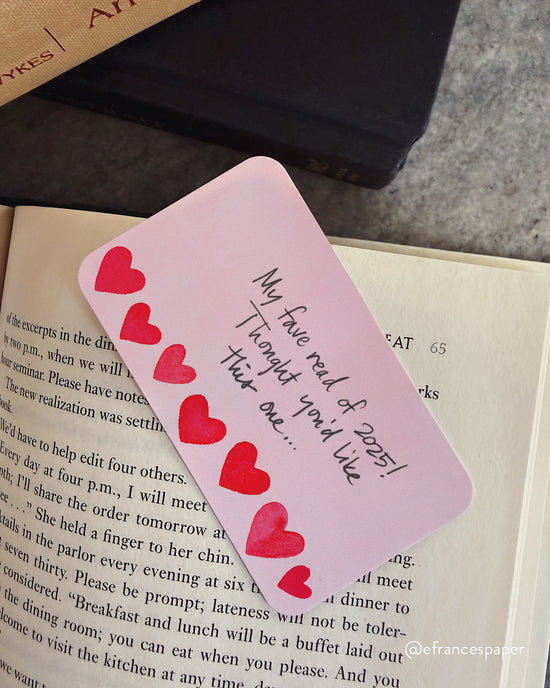 Ar
WYKES
My fave read of 2025!
Thought you'd like
this one...
EAT 65
rks
of the excerpts in the din
by two p.m., when we will
hour seminar. Please have notes
The new realization was settlin
book.
We'd have to help edit four others.
Every day at four p.m., I will meet
pth; I'll share the order tomorrow at
ee . . ." She held a finger to her chin.
ing.
ktails in the parlor every evening at six t
ill meet
seven thirty. Please be prompt; lateness will not be toler-
dinner to
considered. "Breakfast and lunch will be a buffet laid out
the dining room; you can eat when you please. And you
lcome to visit the kitchen at any time, da
we want t
@efrancespaper